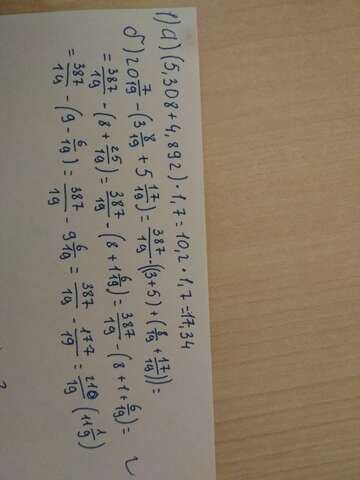 1) а) (5,308+4,892)·1,7=10,2·1,7=17,34
б) 20 7/19 - (3 8/19 + 5 17/19) = 387/19 - ((3+5) + (8/19 + 17/19)) =
= 387/19 - (8 + 25/19) = 387/19 - (8 + 1 6/19) = 387/19 - (8 + 1 + 6/19) =
= 387/19 - (9 - 6/19) = 387/19 - 9 6/19 = 387/19 - 177/19 = 210/19 (11 1/19)